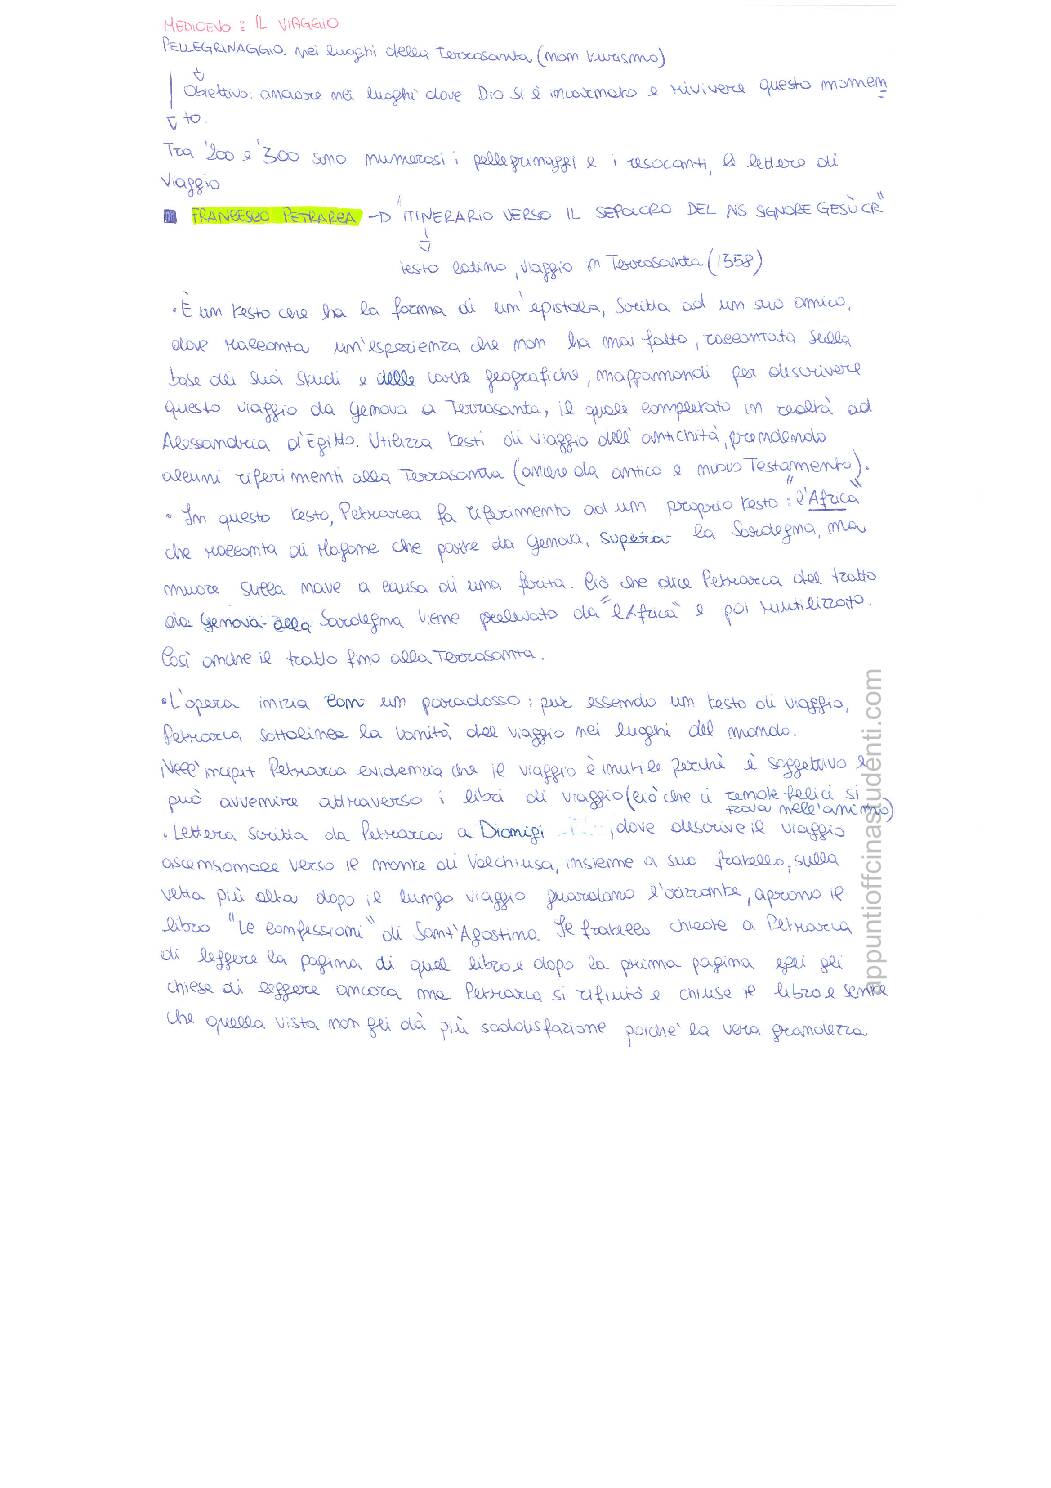 MEDIOEVO: IL VIAGGIO
PELLEGRINAGGIO: nei luoghi della Terrasanta (non turismo)
Obiettivo: andare nei luoghi dove Dio si è incarnato e rivivere questo momen
to.
Tra '200 e '300 sono numerosi i pellegrinaggi e i resoconti, le lettere di
viaggio
FRANCESCO PETRARCA → "ITINERARIO VERSO IL SEPOLCRO DEL NS SIGNORE GESÙ CR"
testo latino, viaggio in Terrasanta (1358)
• È un testo che ha la forma di un'epistola, scritta ad un suo amico,
dove racconta un'esperienza che non ha mai fatto, raccontata sulla
base dei suoi studi e delle carte geografiche, mappamondi per descrivere
questo viaggio da Genova a Terrasanta, il quale completato in realtà ad
Alessandria d'Egitto. Utilizza testi di viaggio dell'antichità, prendendo
alcuni riferimenti alla Terrasanta (anche da antico e nuovo Testamento).
• In questo testo, Petrarca fa riferimento ad un proprio testo: "l'Africa"
che racconta di Magone che parte da Genova, supera la Sardegna, ma
muore sulla nave a causa di una ferita. Ciò che dice Petrarca del tratto
da Genova alla Sardegna viene prelevato da "l'Africa" e poi riutilizzato.
Così anche il tratto fino alla Terrasanta.
• L'opera inizia con un paradosso: pur essendo un testo di viaggio,
Petrarca sottolinea la vanità del viaggio nei luoghi del mondo.
Nell'incipit Petrarca evidenzia che il viaggio è inutile perché è soggettivo e
può avvenire attraverso i libri di viaggio (ciò che ci rende felici si
trova nell'animo)
• Lettera scritta da Petrarca a Dionigi, dove descrive il viaggio
ascensionale verso il monte di Valchiusa, insieme a suo fratello, sulla
vetta più alta dopo il lungo viaggio guardano l'orizzonte, aprono il
libro "Le confessioni" di Sant'Agostino. Il fratello chiede a Petrarca
di leggere la pagina di quel libro e dopo la prima pagina egli gli
chiese di leggere ancora ma Petrarca si rifiutò e chiuse il libro e sente
che quella vista non gli dà più soddisfazione poiché la vera grandezza
appuntiofficinastudenti.com